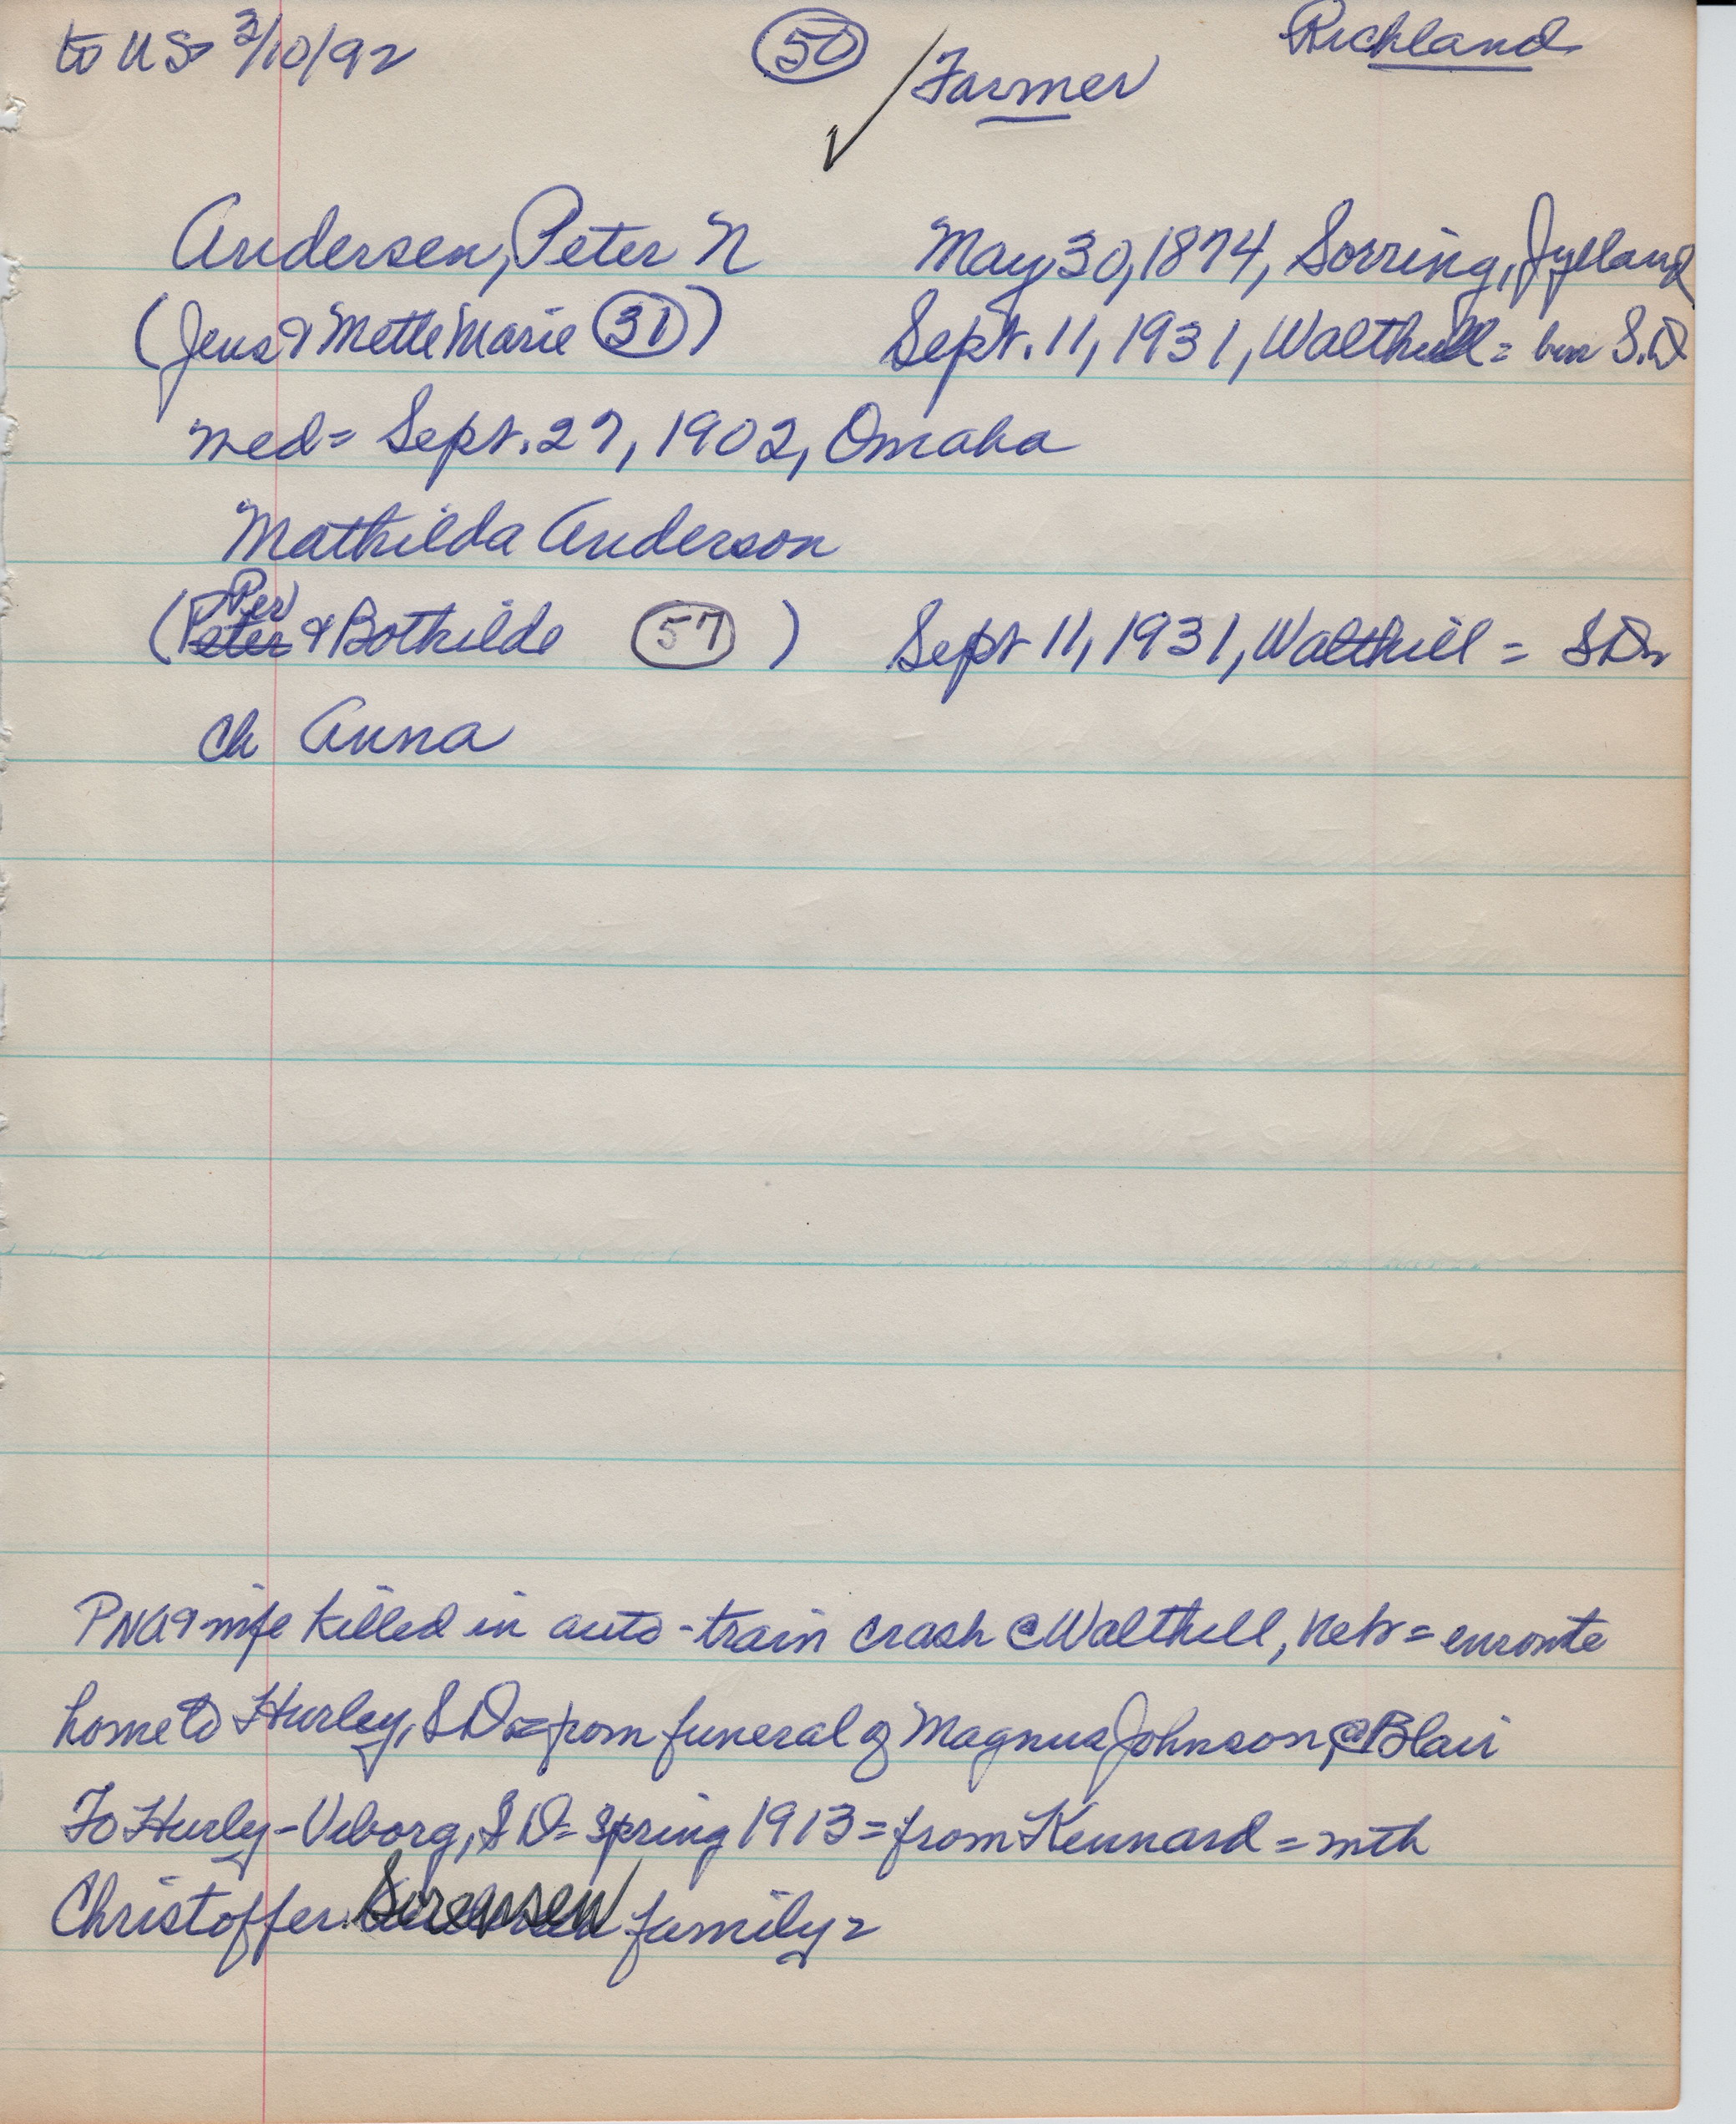 to US 3/10/92 (50) Richland
Farmer
Andersen, Peter N May 30, 1874, Sorring, Jylland
(Jens & Mette Marie (31)) Sept. 11, 1931, Walthill = bur S.D
wed = Sept. 27, 1902, Omaha
Mathilda Anderson
Per
(Peter & Bothilde (57)) Sept 11, 1931, Walthill = SD
ch Anna
PNA & wife killed in auto-train crash @ Walthill, Neb = enroute
home to Hurley, SD = from funeral of Magnus Johnson, @ Blair
To Hurly-Viborg, SD = spring 1913 = from Kennard = with
Christoffer Sorensen family =